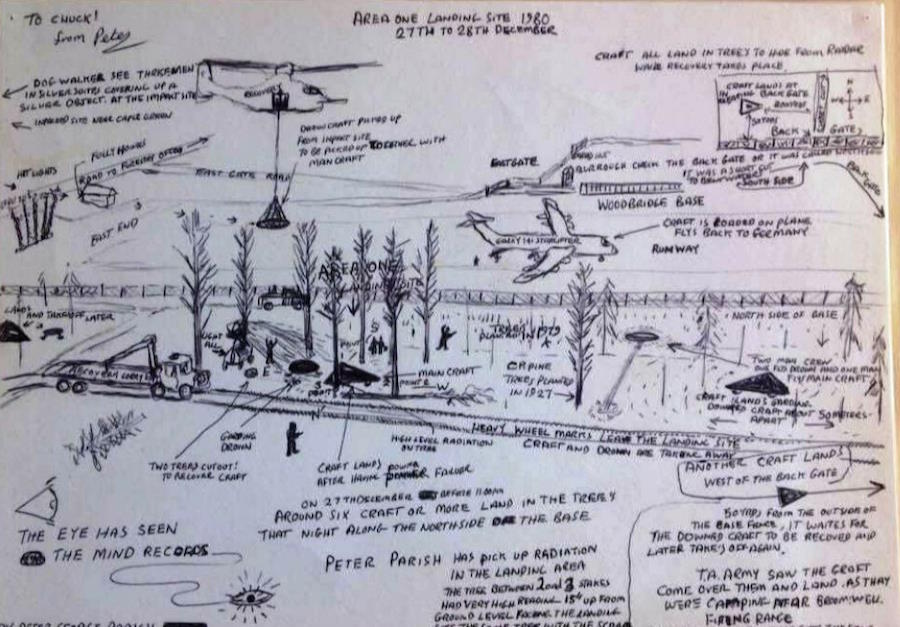 TO CHUCK!
from Peter
AREA ONE LANDING SITE 1980
27TH TO 28TH DECEMBER
CRAFT ALL LAND IN TREES TO HIDE FROM RADAR
RECOVERY TAKES PLACE.
DOG WALKER SEE THREEMEN
IN SILVER SUITES COVERING UP A
SILVER OBJECT. AT THE IMPACT SITE
IMPACT SITE NEAR CAPEL GREEN
RECOVER
DROWN CRAFT PICKED UP
FROM IMPACT SITE
TO BE PICKED UP TOGETHER WITH
MAIN CRAFT
CRAFT LANDS AT
BACK GATE
BACK GATE
N
E
HOT LIGHTS
FOLLY HOUSE
ROAD TO FORESTRY OFFICE
EAST GATE ROAD
EAST END
EASTGATE
BURROUGH CHECK THE BACK GATE OR IT WAS
IT WAS A SHORT CUT
SOUTH SIDE
BACK GATE
WOODBRIDGE BASE
GALAXY 141 STARLIFTER
CRAFT IS LOADED ON PLANE
FLYS BACK TO GERMANY
RUNWAY
AREA ONE
LANDING SITE
LANDS
AND TAKE OFF LATER
LIGHT
ALL
S
E
W
POINT
POINT 2
MAIN CRAFT
TREES
PLANTED IN 1979
CR PINE
TREES PLANTED
IN 1927
NORTH SIDE OF BASE
TWO MAN CREW
ONE FLYS DROWN AND ONE MAN
FLYS MAIN CRAFT
CRAFT LANDS GARDING
DOWNED CRAFT ABOUT 50 METERS
APART
RECOVERY LORRY
HEAVY WHEEL MARKS LEAVE THE LANDING SITE
CRAFT AND DROWN ARE TAKEING AWAY
GARDING
DROWN
TWO TREES CUTOUT!
TO RECOVER CRAFT
CRAFT LANDS
AFTER HAVING POWER
HIGH LEVEL RADIATION
ON TREE
ANOTHER CRAFT LANDS
WEST OF THE BACK GATE
ON 27TH DECEMBER BEFORE 11.00PM
AROUND SIX CRAFT OR MORE LAND IN THE TREES
THAT NIGHT ALONG THE NORTHSIDE OF THE BASE
THE EYE HAS SEEN
THE MIND RECORDS
PETER PARISH HAS PICK UP RADIATION
IN THE LANDING AREA
THE TREE BETWEEN 2 and 3 STAKES
HAD VERY HIGH READING 15ft UP FROM
GROUND LEVEL FACING THE LANDING
SITE THE SAME TREE WITH THE SCARS
50 YARDS FROM THE OUTSIDE OF
THE BASE FENCE, IT WAITES FOR
THE DOWNED CRAFT TO BE RECOVED AND
LATER TAKE'S OFF AGAIN.
T.A. ARMY SAW THE CRAFT
COME OVER THEM AND LAND. AS THAY
WERE CAMPING NEAR BROOMWELL
FIREING RANGE
PETER GEORGE PARISH